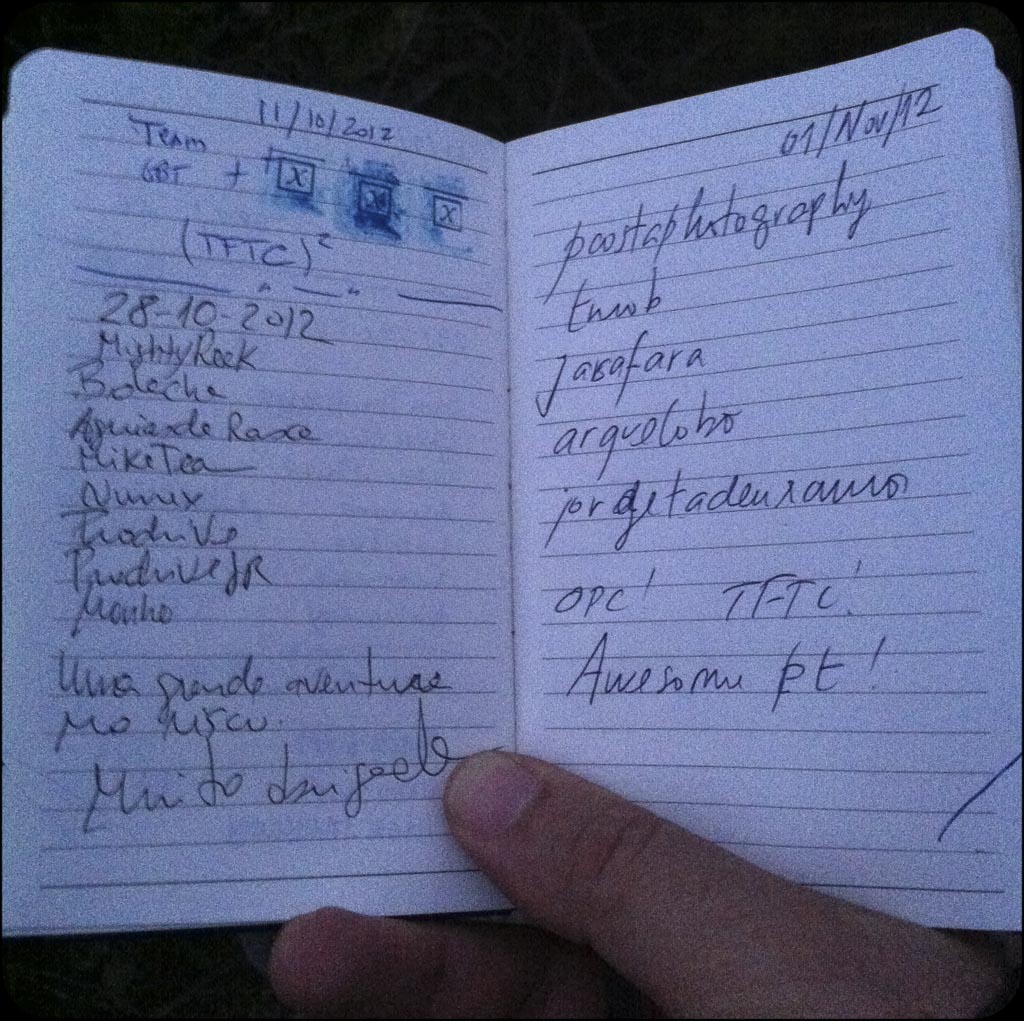 11/10/2012
Team
GBT + X X X
(TFTC)²
28-10-2012
MightyRock
Bolacha
Aguiade Raxa
MikeTea
Nunux
Prodrive
ProdriveJR
Monho
Uma grande aventura
no
Muito obrigado
01/Nov/12
poostaphotography
tmob
jasafara
arquelobo
jorgetadeuramos
OPC! TFTC!
Awesome pt!